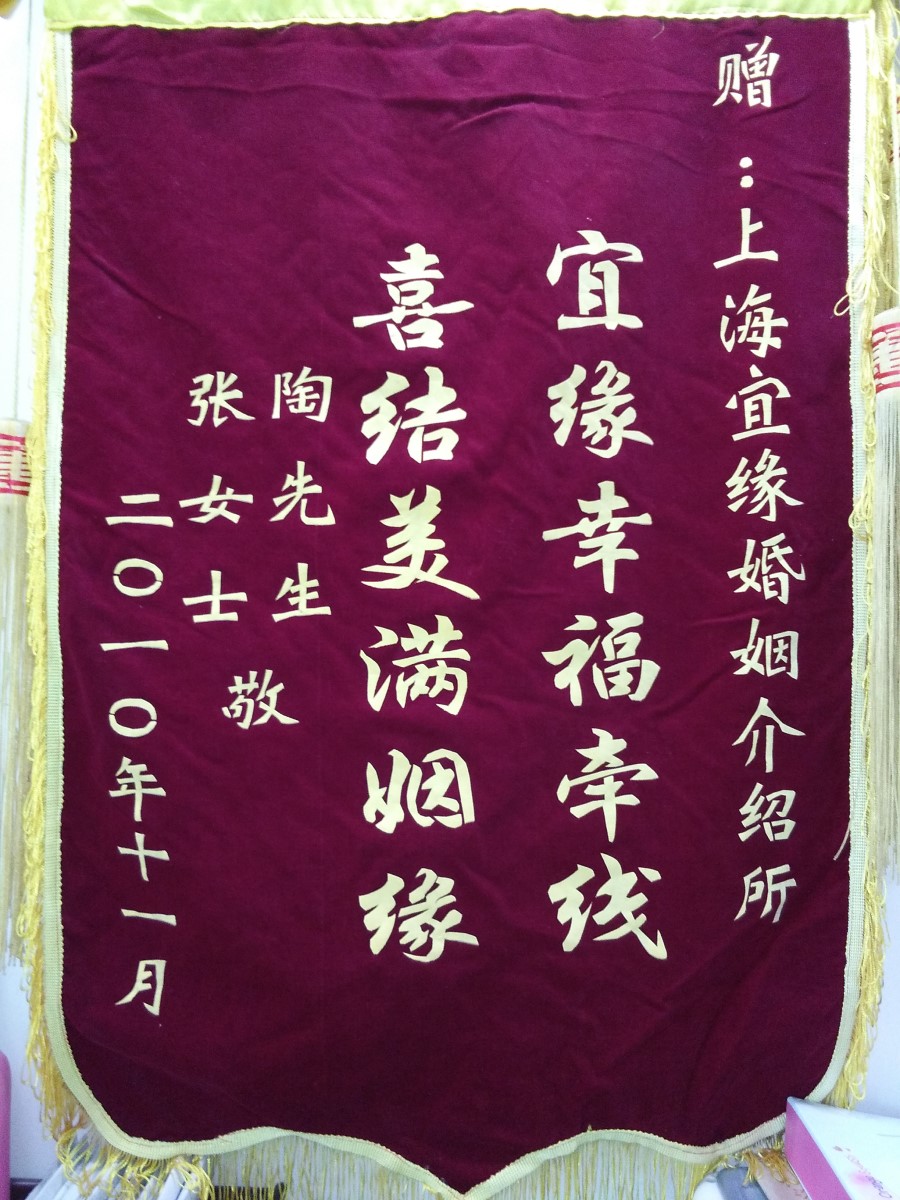 赠：上海宜缘婚姻介绍所
宜缘幸福牵线
喜结美满姻缘
陶先生
张女士
敬
二〇一〇年十一月